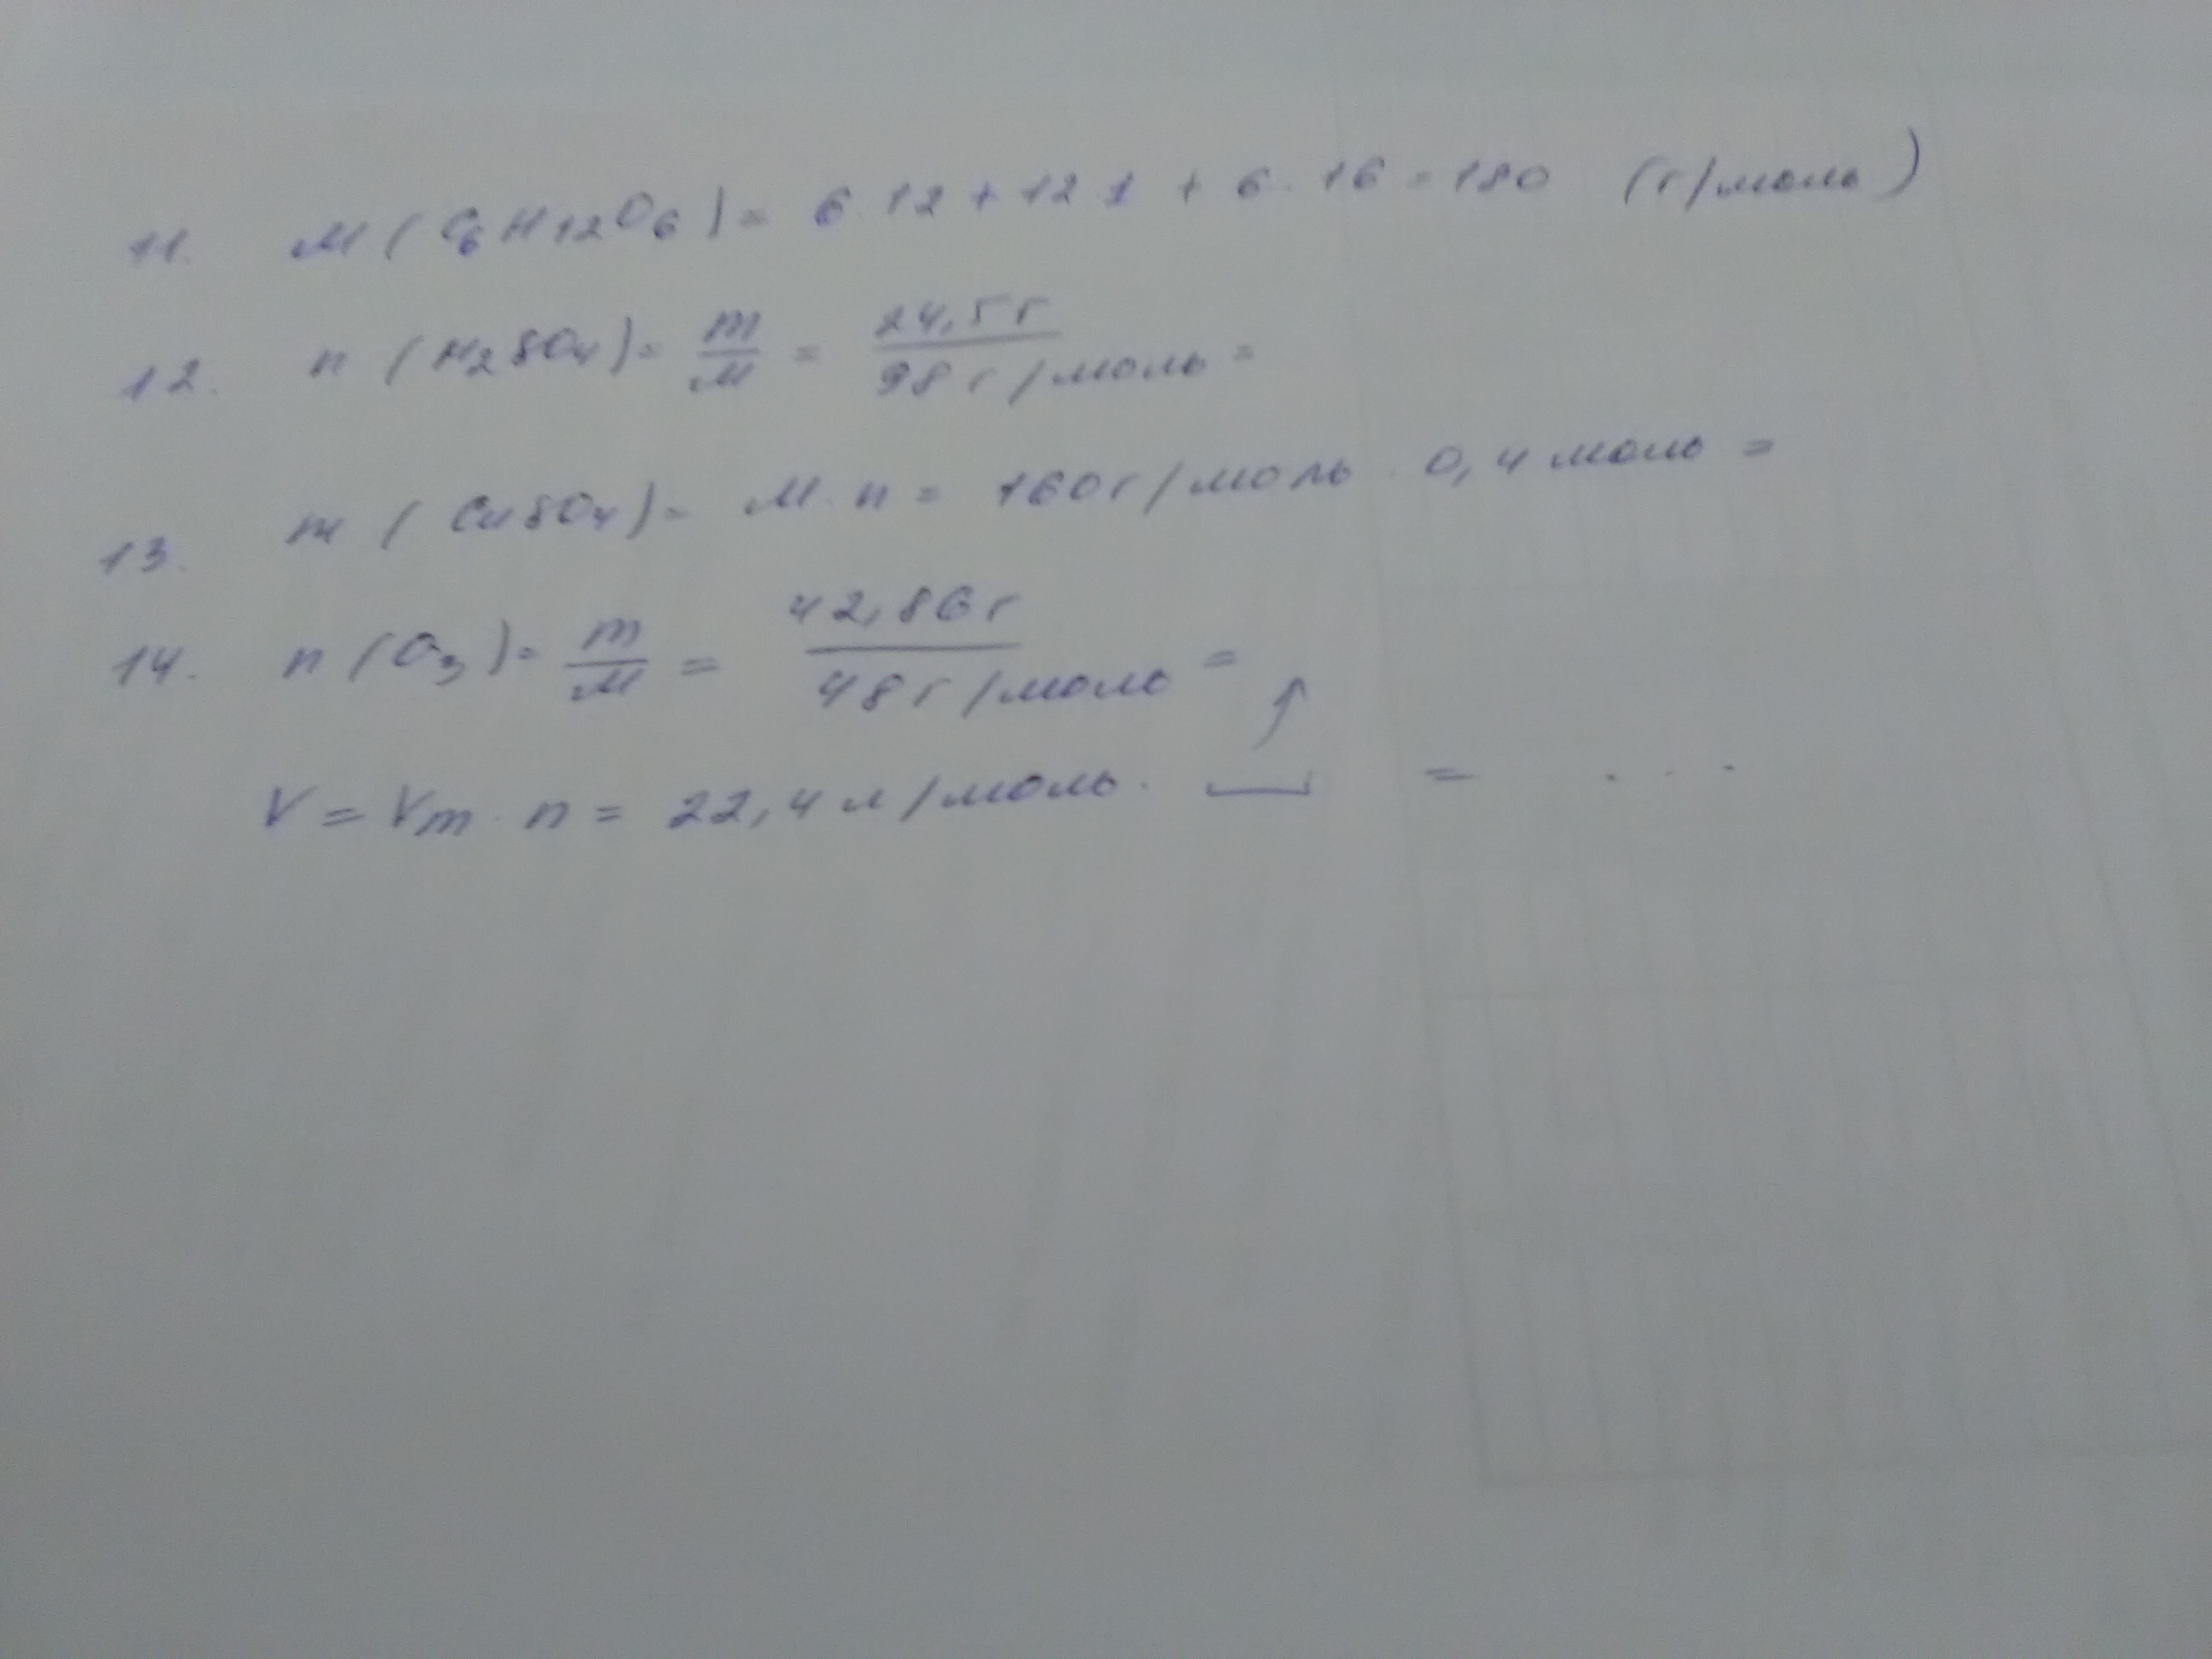 11. M (C6H12O6) = 6·12 + 12·1 + 6·16 = 180 (г/моль)
12. n (H2SO4) = m/M = 24,5г/98г/моль =
13. m (CuSO4) = M·n = 160г/моль · 0,4 моль =
14. n (O3) = m/M = 42,86г/48г/моль =
V = Vm · n = 22,4 л/моль · = ...